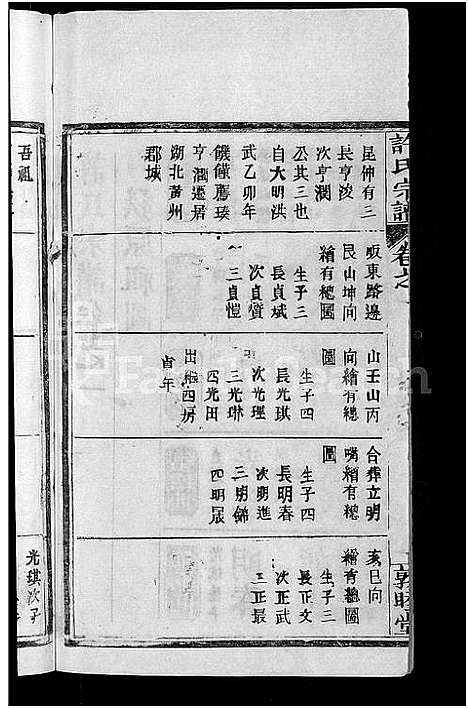 許氏宗譜
卷之一
敦睦堂
昆仲有三
長亨浚
次亨潤
公其三也
自大明洪
武乙卯年
饑饉薦臻
亨潤遷居
湖北黃州
郡城
坂東路邊
艮山坤向
繪有總圖
生子三
長貞斌
次貞質
三貞愷
山壬山丙
向繪有總
圖
生子四
長光琪
次光理
三光琳
四光田
出繼四房
貞年
合葬立明
嘴繪有總
圖
生子四
長明春
次明進
三明錦
四明晸
亥巳向
繪有總圖
生子三
長正文
次正武
三正最
吾祖
光琪次子